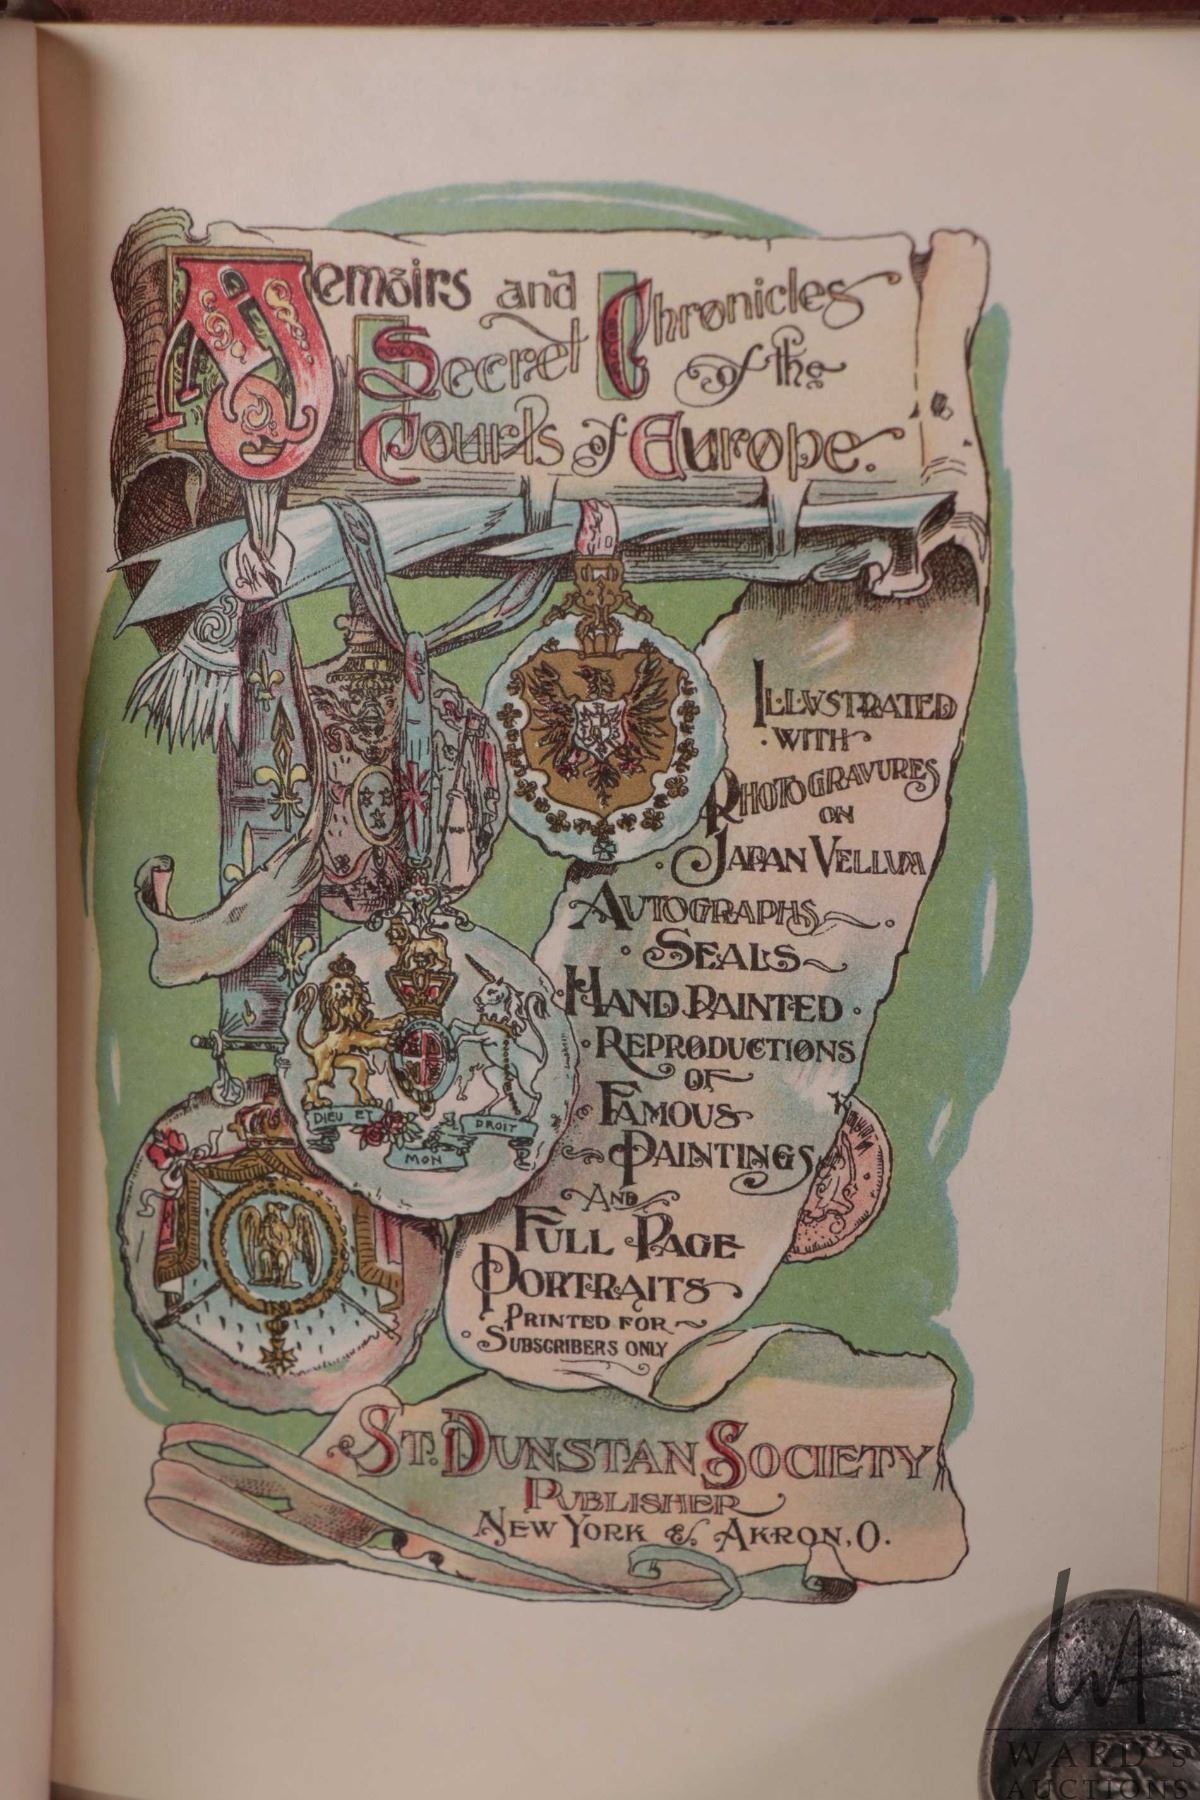 Memoirs and Secret Chronicles
of the
Courts of Europe.
Illustrated
with
Photogravures
on
Japan Vellum
Autographs
Seals
Hand Painted
Reproductions
of
Famous
Paintings
And
Full Page
Portraits
Printed for
Subscribers only
DIEU ET
MON
DROIT
St. Dunstan Society
Publisher
New York & Akron, O.
WA
WARD'S
AUCTIONS